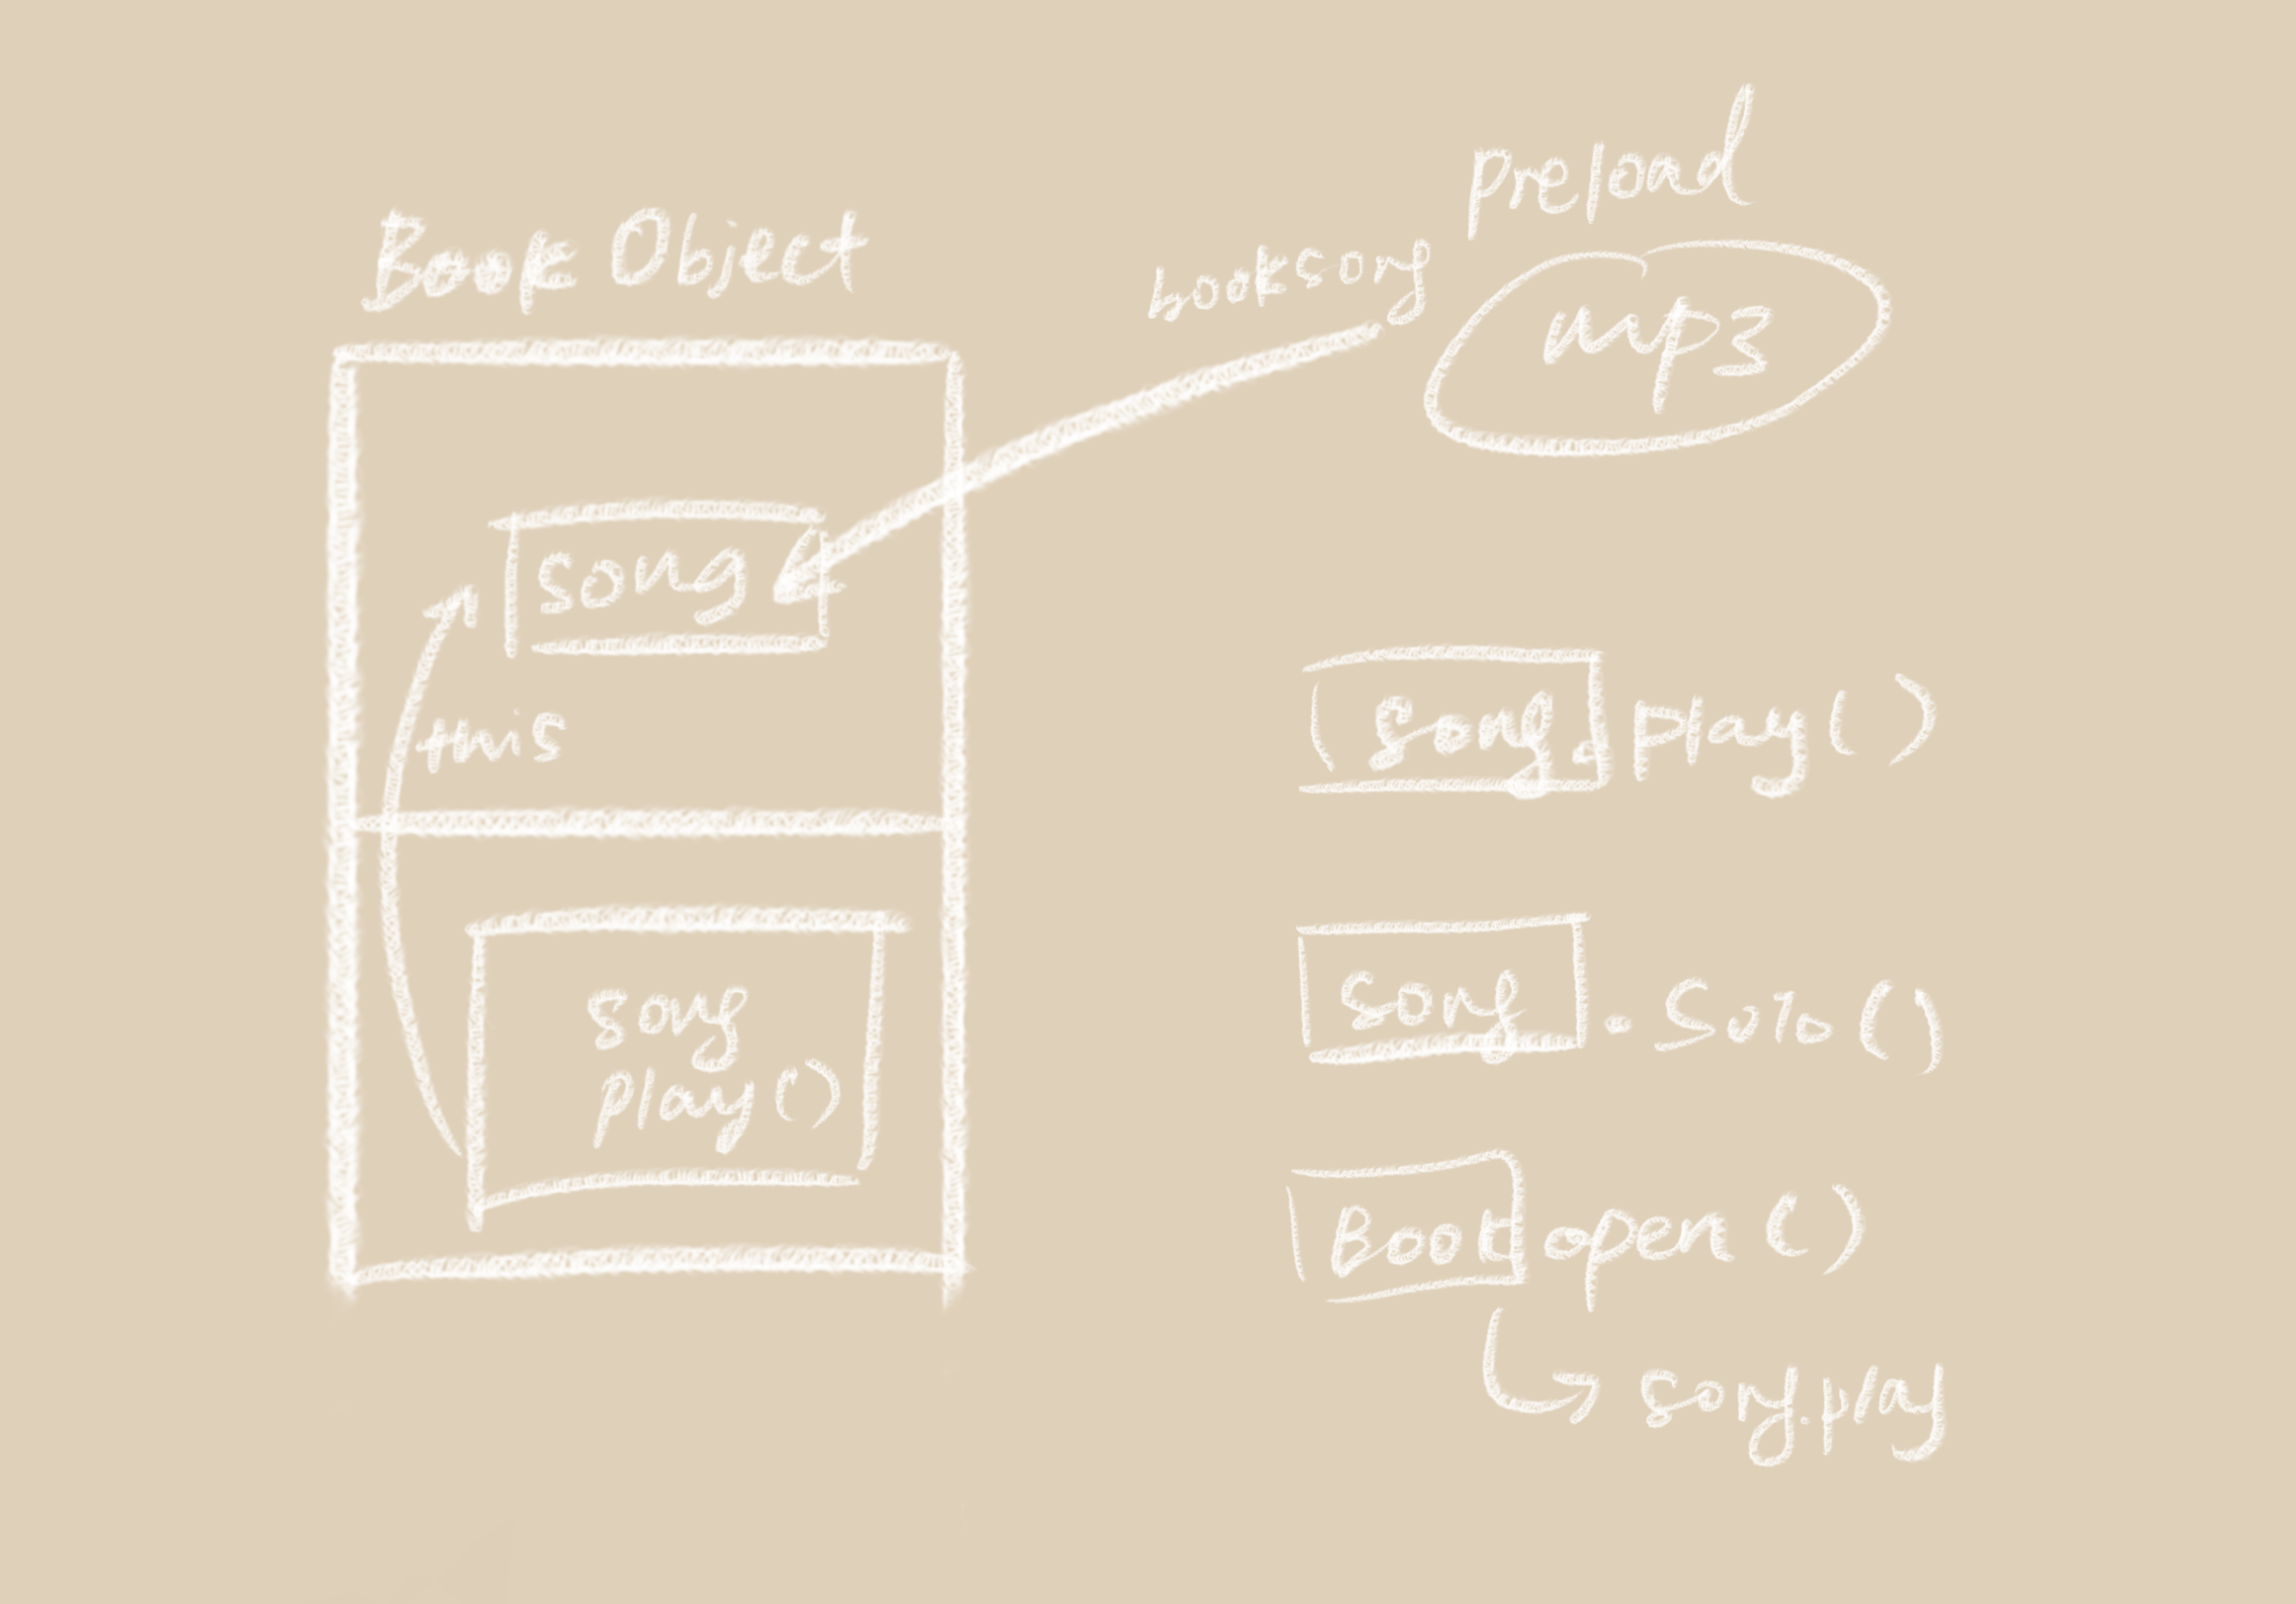 Book Object
song
this
song
play()
preload
booksong
mp3
song.play()
song.solo()
Book open()
song.play